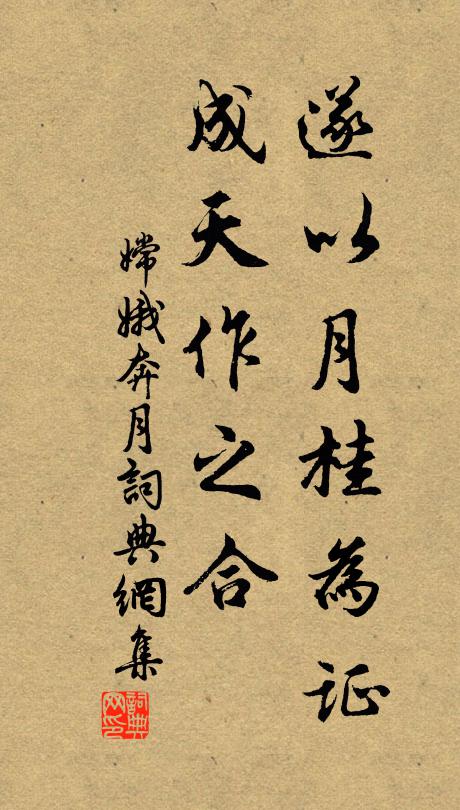 遂以月桂為证
成天作之合
嫦娥奔月詞典網集
詞典网印